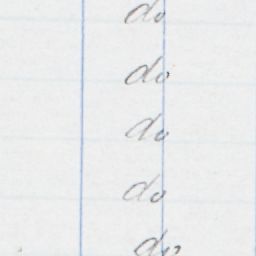 do
do
do
do
do